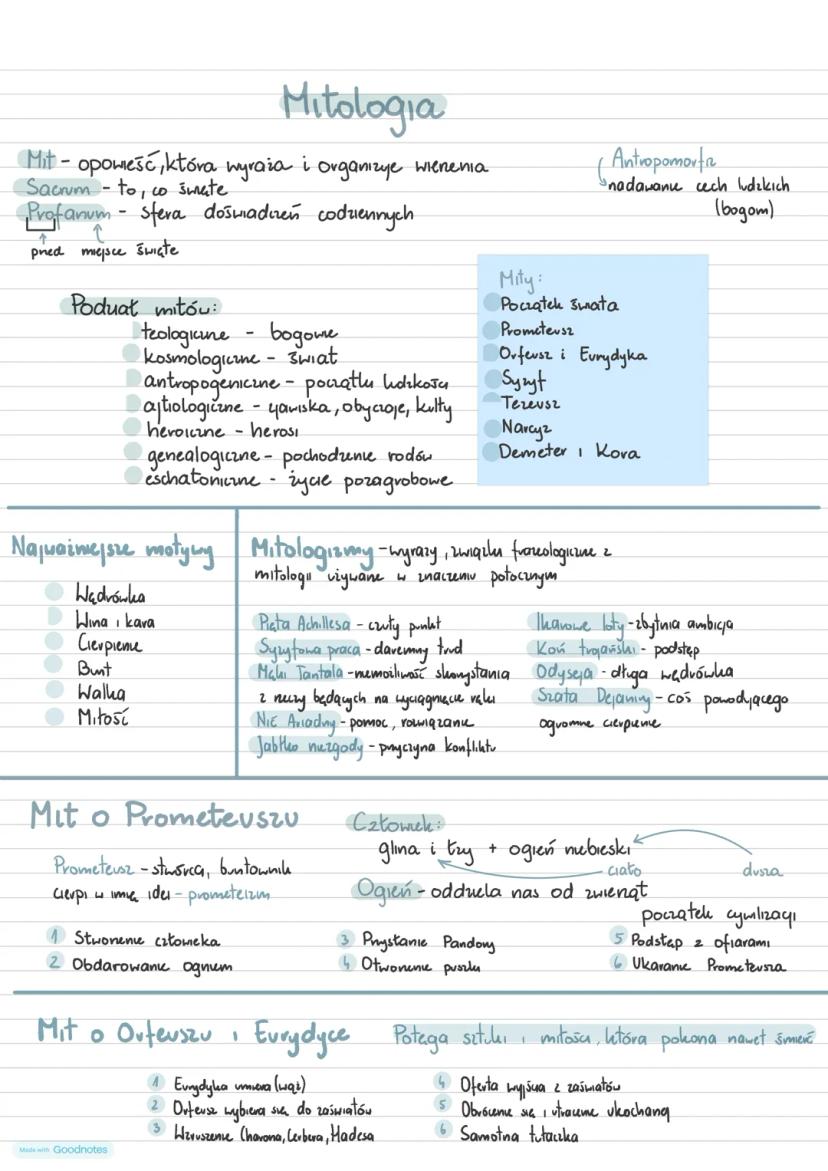 Mitologia
Mit - opowieść, która wyraża i organizuje wierzenia
Sacrum - to, co święte
Profanum - sfera doświadczeń codziennych
przed miejsce święte
Antropomorfiz
nadawanie cech ludzkich
(bogom)
Podział mitów:
teologiczne - bogowie
kosmologiczne - świat
antropogeniczne - początki ludzkości
ajtiologiczne - zjawiska, obyczaje, kulty
heroiczne - herosi
genealogiczne - pochodzenie rodów
eschatoniczne - życie pozagrobowe
Mity:
Początek świata
Prometeusz
Orfeusz i Eurydyka
Syzyf
Tezeusz
Narcyz
Demeter i Kora
Najważniejsze motywy
Wędrówka
Wina i kara
Cierpienie
Bunt
Walka
Miłość
Mitologizmy - wyrazy, związki frazeologiczne z
mitologii używane w znaczeniu potocznym
Pięta Achillesa - czuły punkt
Syzyfowa praca - daremny trud
Męki Tantala - niemożliwość skorzystania
z rzeczy będących na wyciągnięcie ręki
Nić Ariadny - pomoc, rozwiązanie
Jabłko niezgody - przyczyna konfliktu
Ikarowe loty - zbytnia ambicja
Koń trojański - podstęp
Odyseja - długa wędrówka
Szata Dejaniry - coś powodującego
ogromne cierpienie
Mit o Prometeuszu
Prometeusz - stwórca, buntownik
cierpi w imię idei - prometeizm
Człowiek:
glina i łzy + ogień niebieski
ciało dusza
Ogień - oddziela nas od zwierząt
początek cywilizacji
1 Stworzenie człowieka
2 Obdarowanie ogniem
3 Przysłanie Pandory
4 Otworzenie puszki
5 Podstęp z ofiarami
6 Ukaranie Prometeusza
Mit o Orfeuszu i Eurydyce
Potęga sztuki i miłości, która pokona nawet śmierć
1 Eurydyka umiera (wąż)
2 Orfeusz wybiera się do zaświatów
3 Wzruszenie Charona, Cerbera, Hadesa
4 Oferta wyjścia z zaświatów
5 Obrócenie się i utracenie ukochanej
6 Samotna tułaczka
Made with Goodnotes